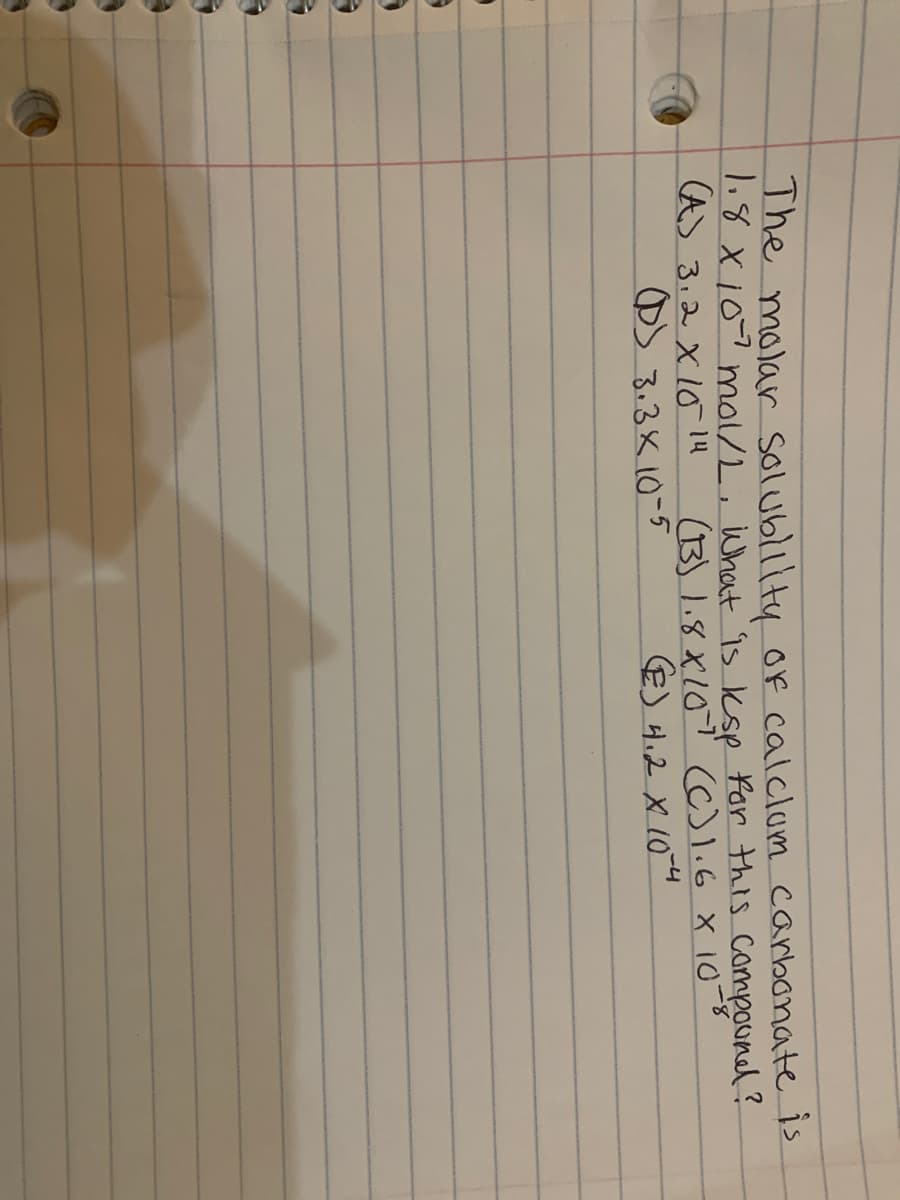 The molar solubility of calcium carbonate is
1.8 x 10⁻⁷ mol/L. What is ksp for this compound?
(A) 3.2 x 10⁻¹⁴ (B) 1.8 x 10⁻⁷ (C) 1.6 x 10⁻⁸
(D) 3.3 x 10⁻⁵ (E) 4.2 x 10⁻⁴